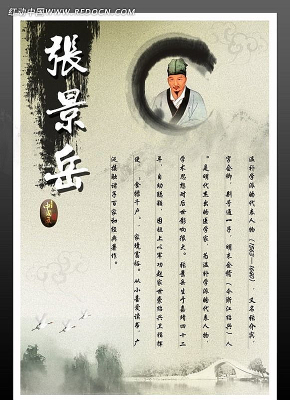 红动中国 WWW.REDOCN.COM
張景岳
温补学派的代表人物(1563—1640),又名张介宾,
字会卿,别号通一子,明末会稽(今浙江绍兴)人
。是明代杰出的医学家,为温补学派的代表人物,
学术思想对后世影响很大。张景岳生于嘉靖四十二
年,自幼聪颖,因祖上以军功起家世袭绍兴卫指挥
使,食禄千户,家境富裕。从小喜爱读书,广
泛接触诸子百家和经典著作。